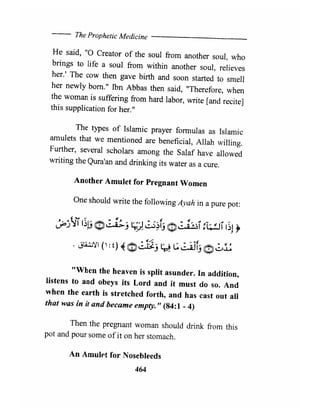 The Prophetic Medicine
He said, "O Creator of the soul from another soul, who
brings to life a soul from within another soul, relieves
her.' The cow then gave birth and soon started to smell
her newly born." Ibn Abbas then said, "Therefore, when
the woman is suffering from hard labor, write [and recite]
this supplication for her."
The types of Islamic prayer formulas as Islamic
amulets that we mentioned are beneficial, Allah willing.
Further, several scholars among the Salaf have allowed
writing the Qura'an and drinking its water as a cure.
Another Amulet for Pregnant Women
One should write the following Ayah in a pure pot:
﴿ إِذَا ٱلسَّمَآءُ ٱنشَقَّتْ ۝ وَأَذِنَتْ لِرَبِّهَا وَحُقَّتْ ۝ وَإِذَا ٱلْأَرْضُ
مُدَّتْ ۝ وَأَلْقَتْ مَا فِيهَا وَتَخَلَّتْ ۝ ﴾ (١:٤) الانشقاق .
"When the heaven is split asunder. In addition,
listens to and obeys its Lord and it must do so. And
when the earth is stretched forth, and has cast out all
that was in it and became empty." (84:1 - 4)
Then the pregnant woman should drink from this
pot and pour some of it on her stomach.
An Amulet for Nosebleeds
464